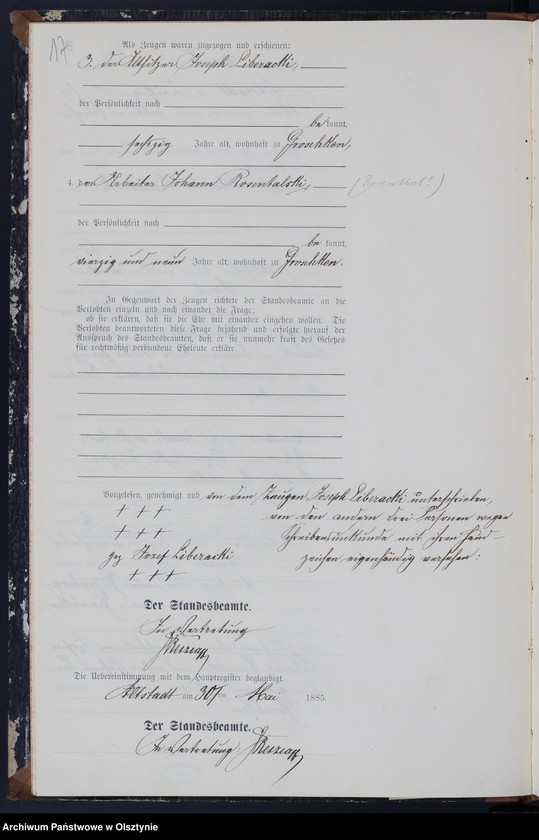 17
Als Zeugen waren zugezogen und erschienen:
3. der Altsitzer Joseph Liberacki,
der Persönlichkeit nach
be kannt,
sechzig Jahre alt, wohnhaft zu Groschken,
4. der Arbeiter Johann Rosentalski, (Rosenthal!)
der Persönlichkeit nach
be kannt,
vierzig und neun Jahre alt, wohnhaft zu Groschken.
In Gegenwart der Zeugen richtete der Standesbeamte an die
Verlobten einzeln und nach einander die Frage:
ob sie erklären, daß sie die Ehe mit einander eingehen wollen. Die
Verlobten beantworteten diese Frage bejahend und erfolgte hierauf der
Ausspruch des Standesbeamten, daß er sie nunmehr kraft des Gesetzes
für rechtmäßig verbundene Eheleute erkläre.
Vorgelesen, genehmigt und von dem Zeugen Joseph Liberacki unterschrieben,
+ + + von den andern drei Personen wegen
+ + + Schreibensunkunde mit ihren Hand-
gez Jozef Liberacki zeichen eigenhändig versehen:
+ + +
Der Standesbeamte.
In Vertretung
Die Uebereinstimmung mit dem Hauptregister beglaubigt
Altstadt am 30ten Mai 1885.
Der Standesbeamte.
In Vertretung
Archiwum Państwowe w Olsztynie